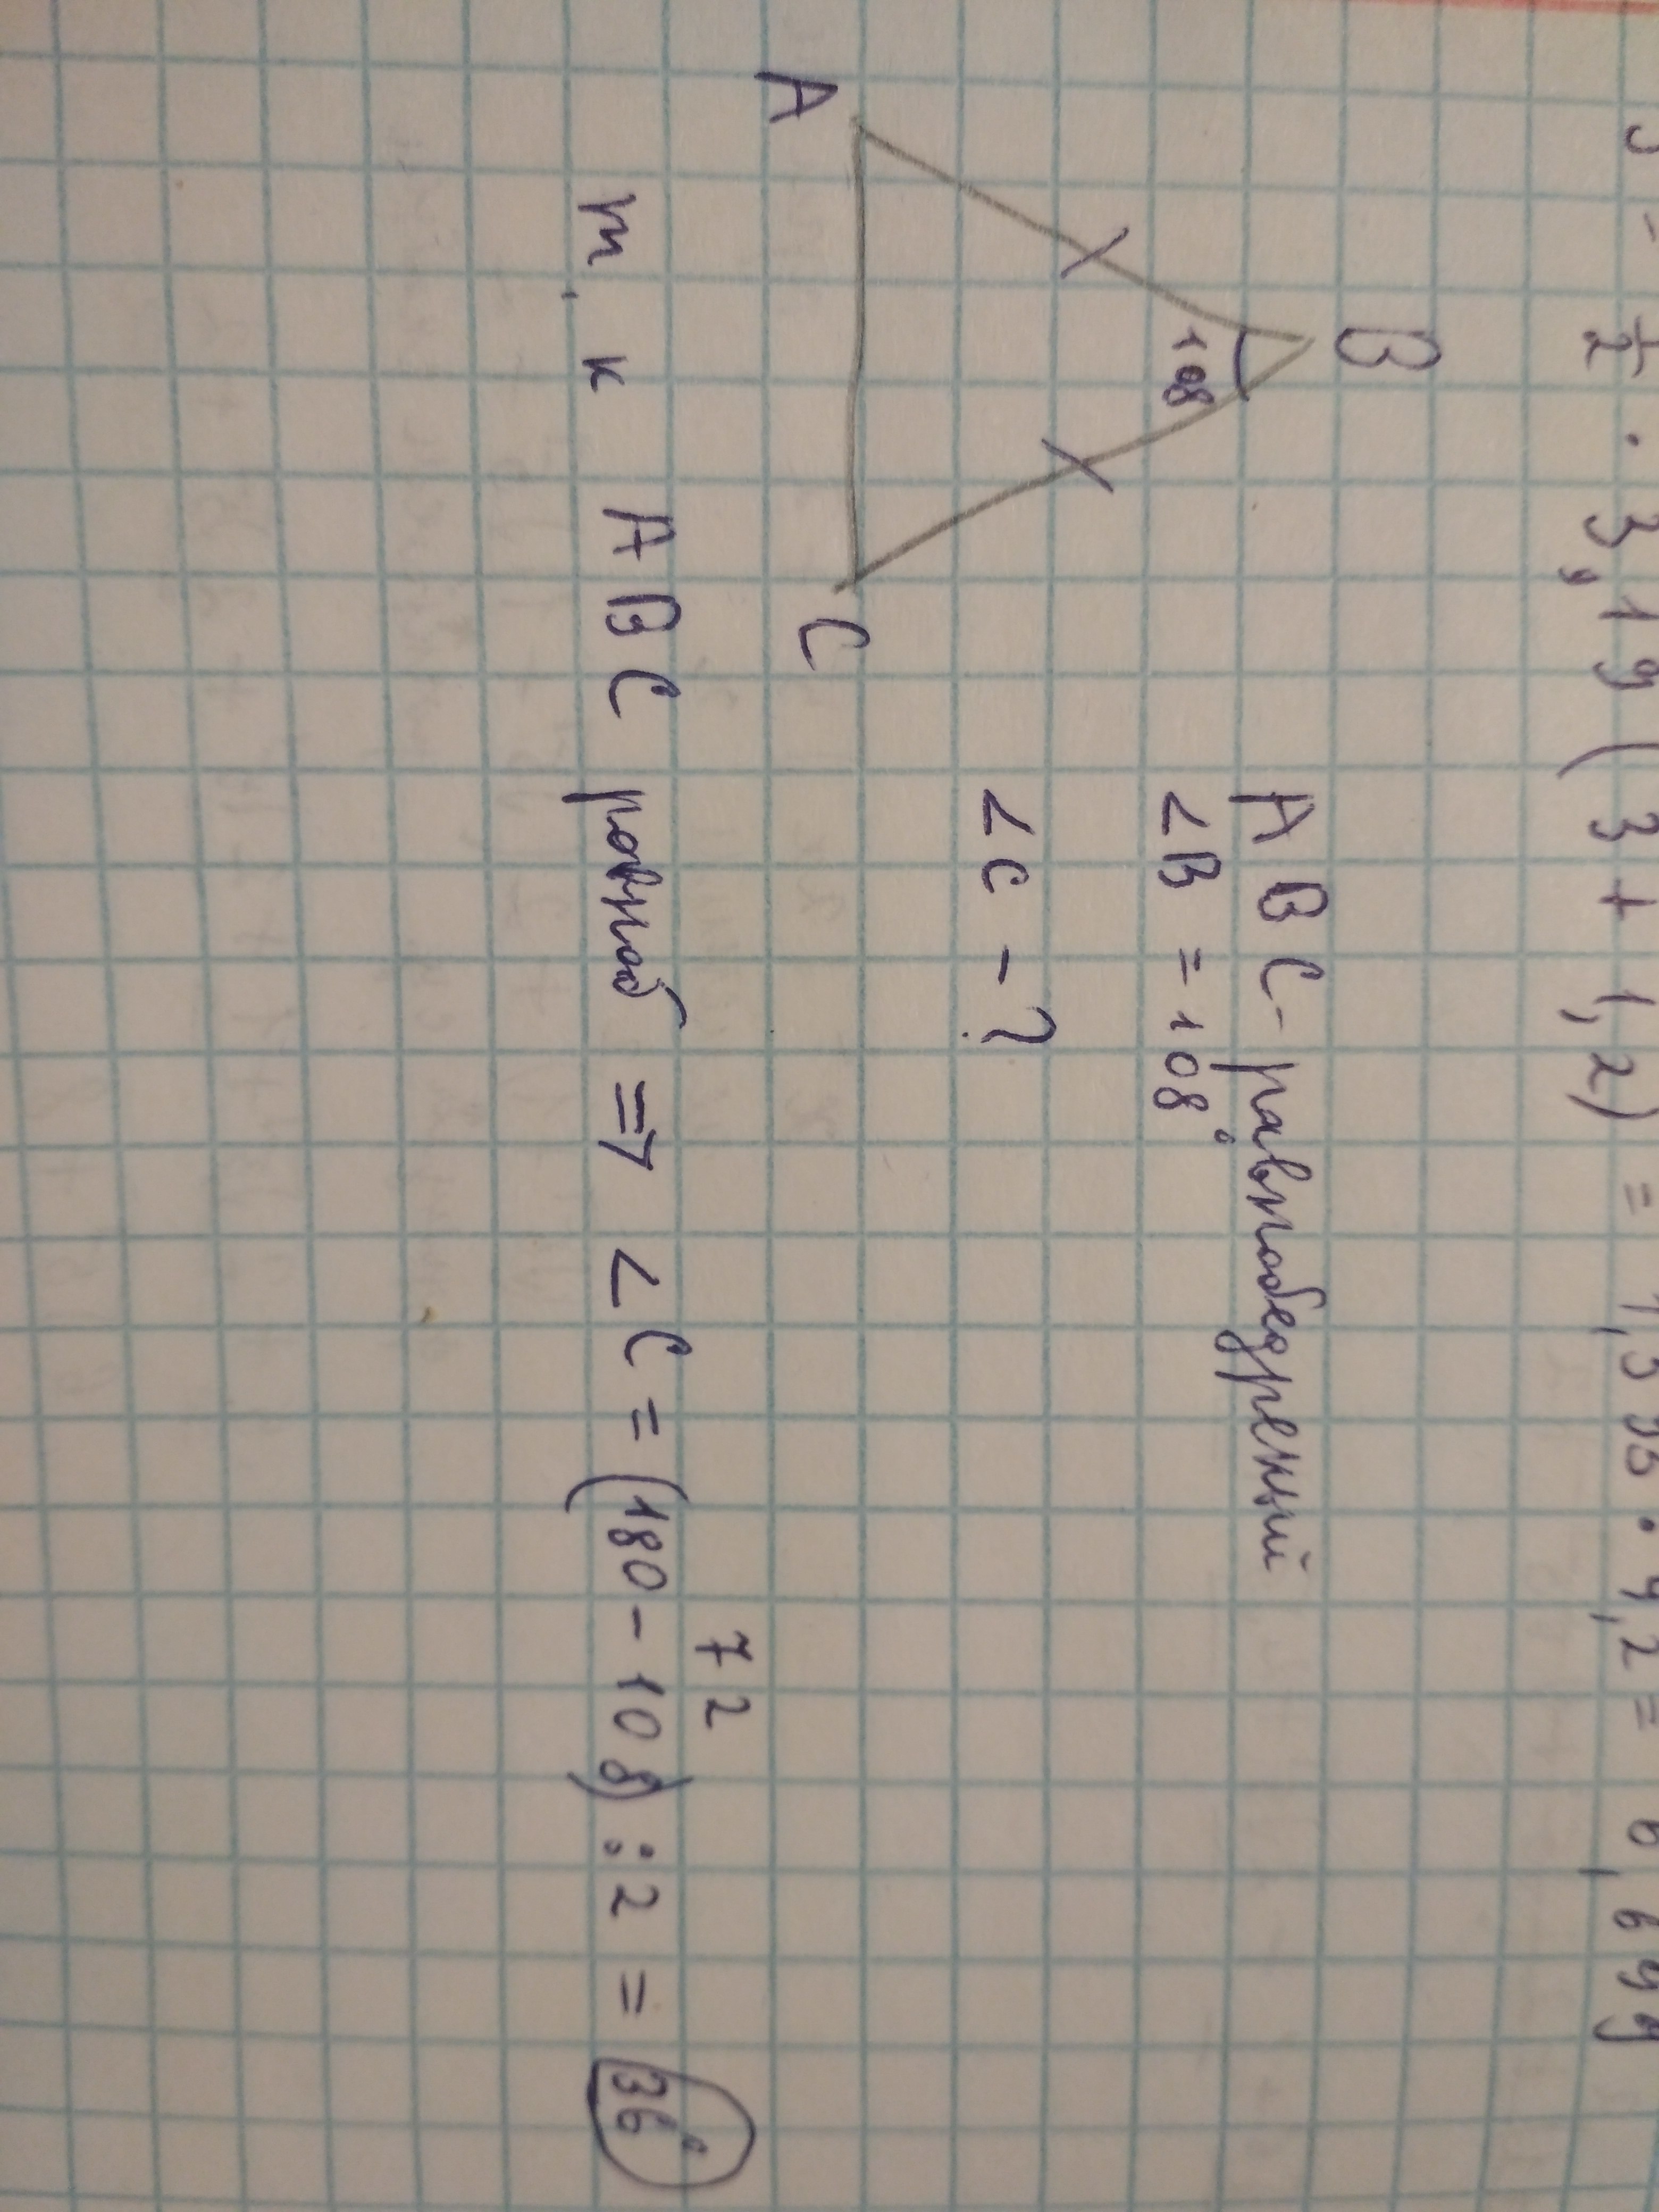 - 1/2 · 3,19 (3 + 1,2) = 1,595 · 4,2 = 6,699
B
108
A
C
ABC - равнобедреный
<B = 108°
<C - ?
72
т. к ABC равноб => <C = (180 - 108) : 2 = 36°